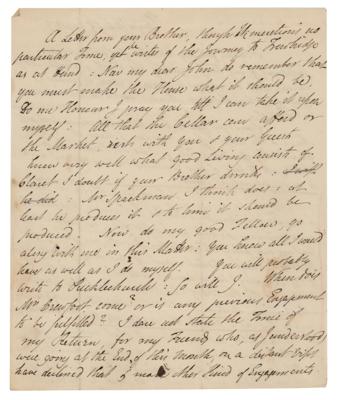 A Letter from your Brother, though He mentions no
particular Time, yet writes of the Journey to Trowbridge
as at Hand: Now my dear John do remember that
you must make the House what it should be.
Do me Honour I pray you till I can take it upon
myself: All that the Cellar can afford or
the Market, rests with you & your Guest
knew very well what good Living consists of.
Claret I doubt if your Brother drinks:
he did: Mr Spackman I think does: at
least he produces it & to him it should be
produced. Now do my good Fellow, go
along with me in this Matter: You know all I would
have as well as I do myself. You will probably
write to: So will I. When does
Mr Crowfoot come? or is any previous Engagement
to be fulfilled? I dare not state the Time of
my Return, for my Friends who, as I understood
were going at the End of this Month, on a distant Visit
have declined that & made other kind of Engagements.